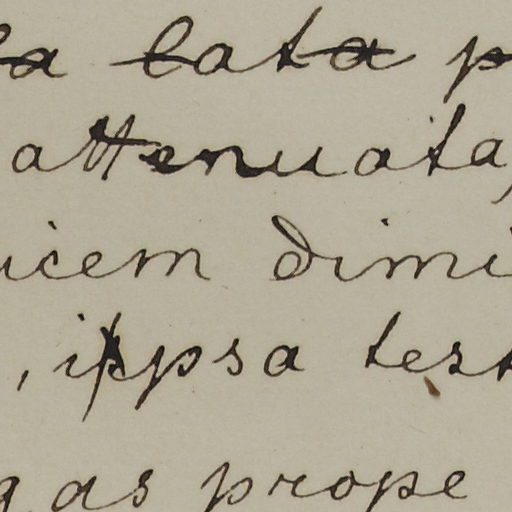 lata p
attenuata,
icem dimi
, ipsa test
gas prope